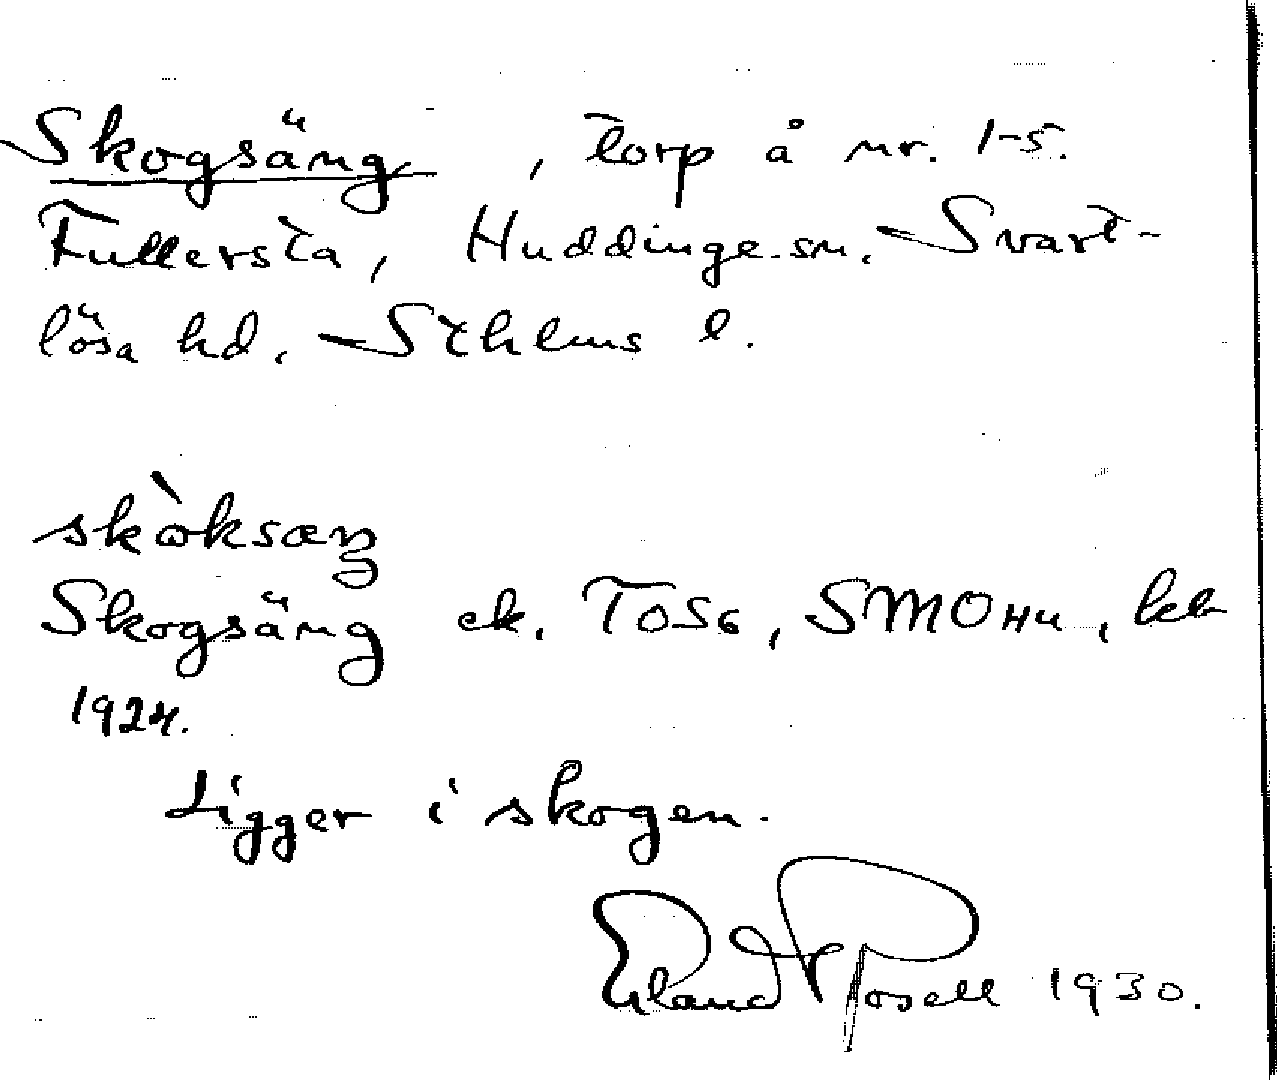 Skogsäng, torp å nr. 1-5.
Fullersta, Huddinge sn. Svart-
lösa hd. Sthlms l.
skòksæŋ
Skogsäng ek. TOSG, SMOHU, kbl
1924.
Ligger i skogen.
Erland Rosell 1930.